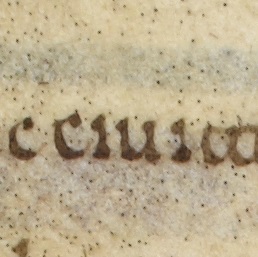 c ciuita